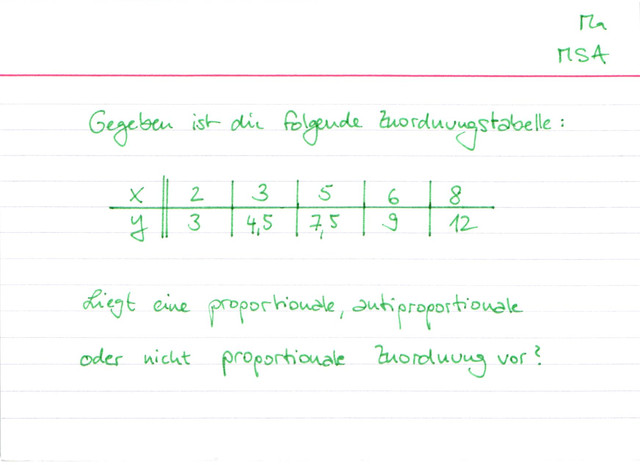 Ma
MSA
Gegeben ist die folgende Zuordnungstabelle:
x 2 3 5 6 8
y 3 4,5 7,5 9 12
Liegt eine proportionale, antiproportionale
oder nicht proportionale Zuordnung vor?